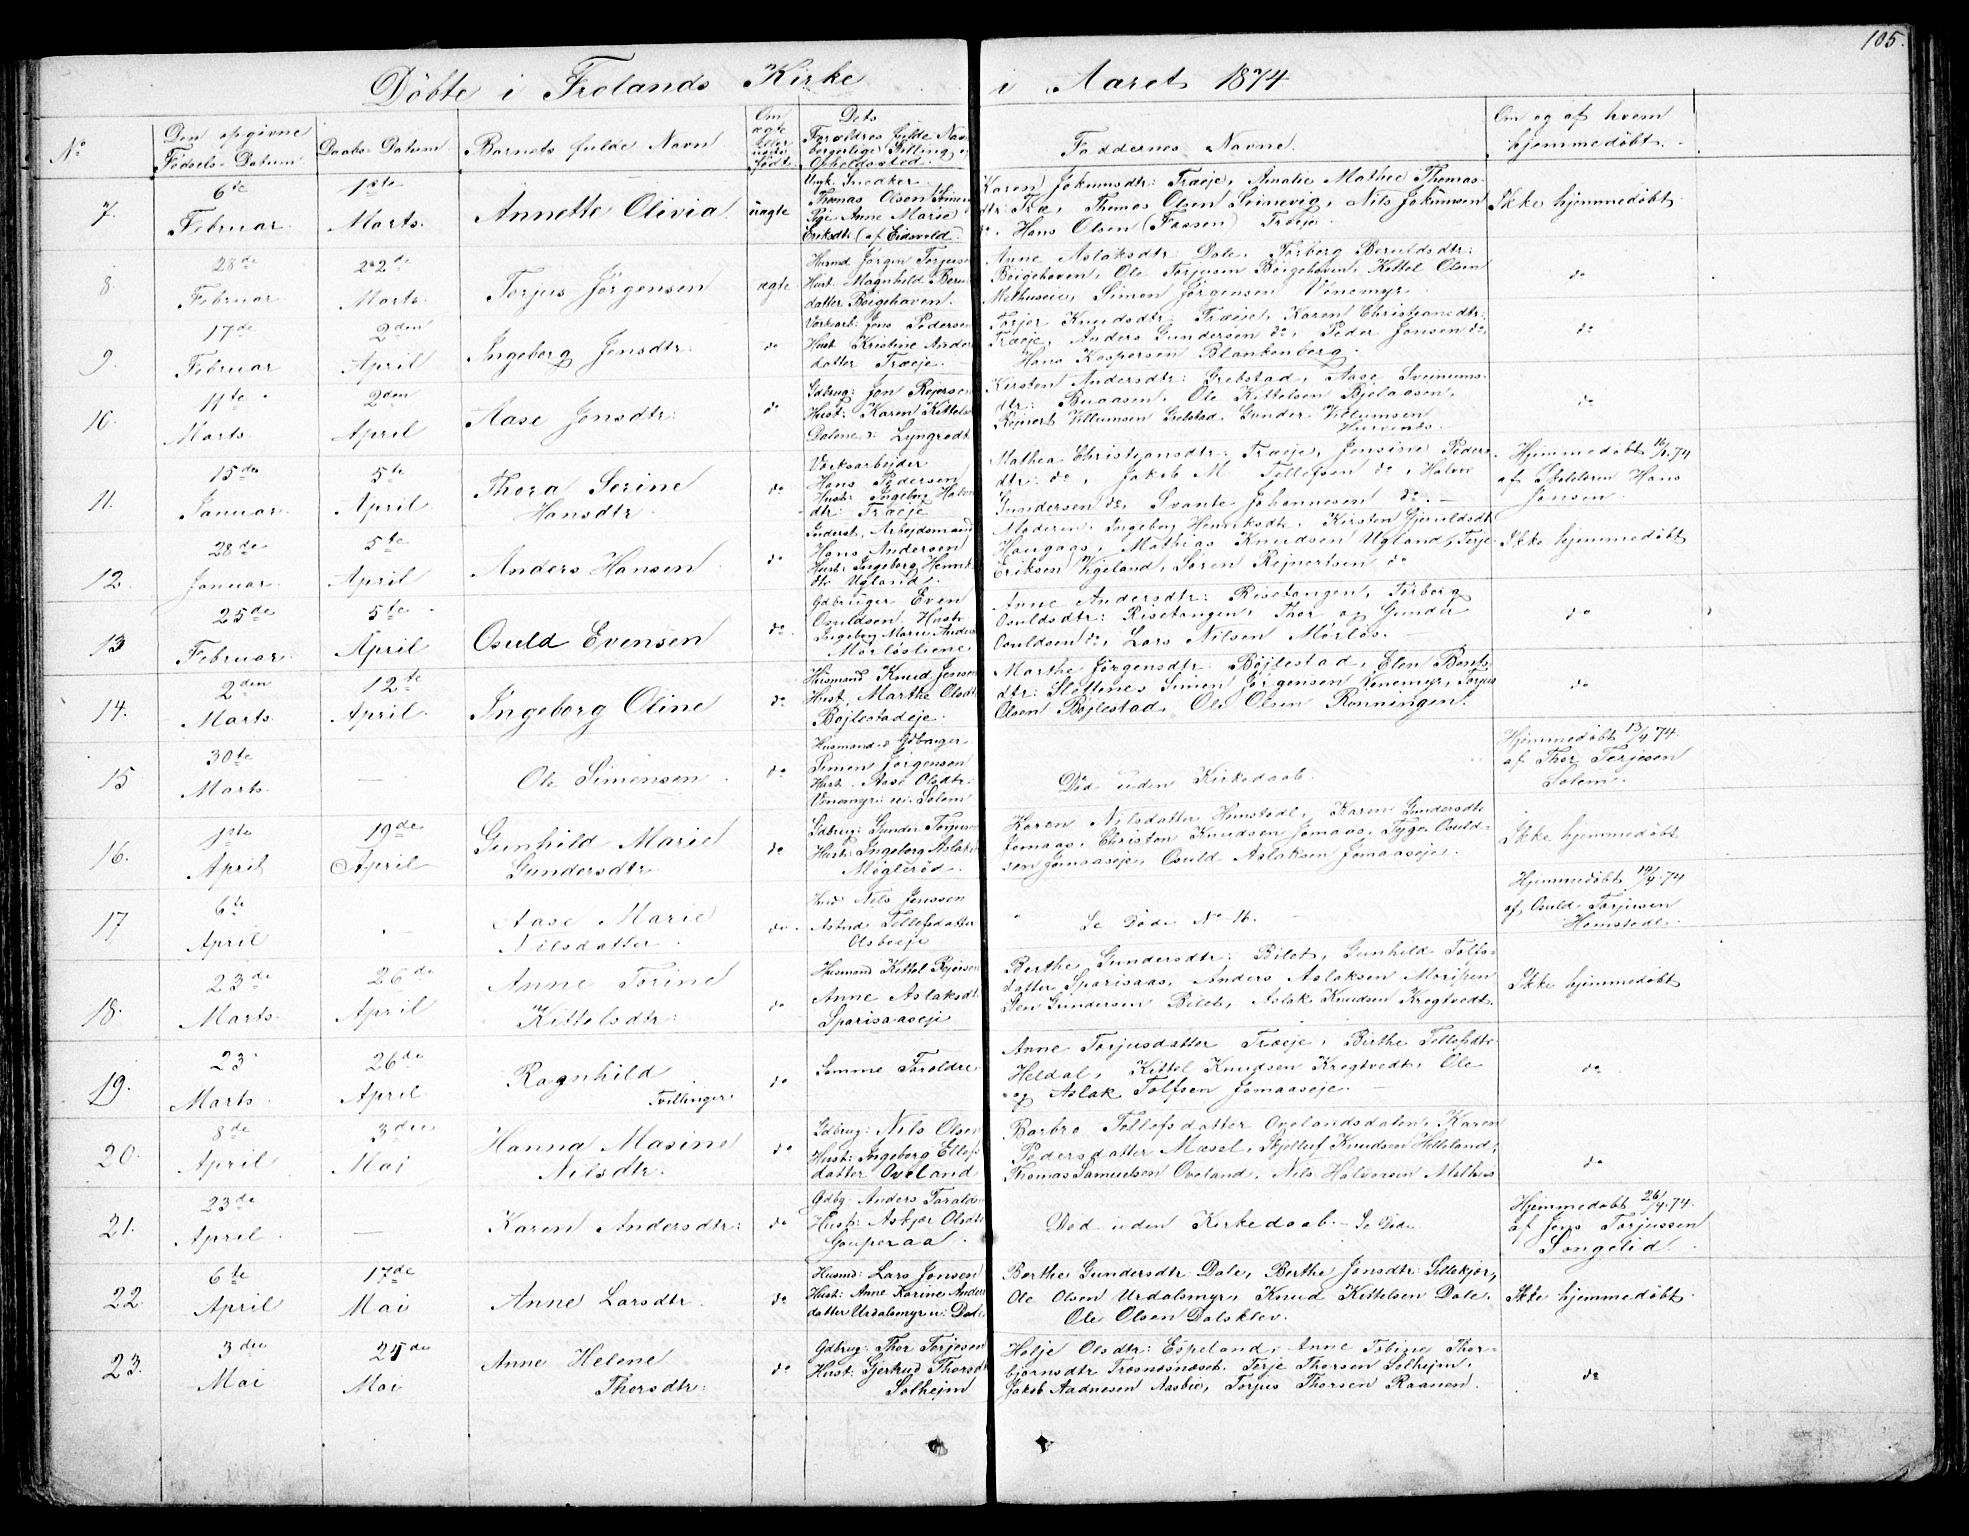 105.
Döbte i Frolands Kirke i Aaret 1874
No
Den opgivne Födsels-Datum
Daabs-Datum
Barnets fulde Navn
Om ægte eller uægte födt.
Dets Forældres fulde Navn borgerlige Stilling og Opholdssted.
Faddernes Navne.
Om og af hvem hjemmedöbt.
7. 6te Februar. 1ste Marts. Annette Olivia uægte
Ungk. Snedker Thomas Olsen
Pige Anne Marie Eriksdtr: (af Eidsvold)
Karen Jokumsdtr: Træeje, Amalie Mathee Thomas-
dtr: Træ, Thomas Olsen Grinevig, Nils Jokumsen
do. Hans Olsen (Faasen) Træeje.
Ikke hjemmedöbt.
8. 28de Februar 22de Marts. Torjus Jörgensen ægte
Husmd Jörgen Torjusen
Hust. Magnhild Beruldatter Böigehaven.
Anne Aslaksdtr: Dale, Torborg Beruldsdtr:
Böigehaven, Ole Torjusen Böigehaven, Kittel Olsen
Simon Jörgensen Vönemyr.
do
9. 17de Februar 2den April Ingeborg Jensdtr: do
Værkarb: Jens Pedersen
Hust. Kristine Andersdatter Træeje.
Torjer Knudsdtr: Træeje, Karen Christiansdtr:
Træeje, Anders Gundersen do, Peder Jonsen do,
Hans Kaspersen Blankenberg.
do
10. 11te Marts. 2den April Aase Jonsdtr: do
Gdbrug: Jon Rejersen
Hust: Karen Kittels
Dalene, i Lyngrodt
Kirsten Andersdtr: Grebstad, Aase Sveinums-
dtr: Buaasen, Ole Kittelsen Bjelaasen,
Rejnert Villumsen Grebstad, Gunder Villumsen
do
11. 15de Januar. 5te April Thora Serine Hansdtr. do
Værksarbejder
Hans Pedersen
Hust: Ingeborg Halvordtr: Træeje
Mathea Christiansdtr: Træeje, Jensine Peders-
dtr: do, Jakob M. Tellefsen do, Halvor
Gundersen do, Svante Johannesen do.
Hjemmedöbt 16/1 74
af Skolelærer Hans
Jonsen.
12. 28de Januar. 5te April Anders Hansen. do
Inderst, Arbejdsmand
Hans Andersen
Hust: Ingeborg Henriksdtr Ugland.
Moderen Ingeborg Henriksdtr. Kirsten Gjeruldsdtr
Haugaas, Mathias Knudsen Ugland, Terje
Eriksen Vigeland, Sören Rejnertsen do
Ikke hjemmedöbt
13 25de Februar. 5te April Osuld Evensen do.
Gdbruger Even
Osuldsen Hust:
Ingeborg Marie Anders
Mörlöstiene
Anne Andersdtr: Risetangen, Torborg
Osuldsdtr: Risetangen, Thor og Gunder
Osuldsen do, Lars Nilsen Mörlös.
do
14. 2den Marts. 12te April. Ingeborg Oline do
Husmand Knud Jensen
Hust, Marthe Olsdtr
Böjlestadeje.
Marthe Jörgensdtr: Böjlestad, Elen Bents-
dtr: Slettenes Simon Jörgensen Vönemyr, Torjus
Olsen Böjlestad, Ole Olsen Rönningen.
do
15 30te Marts. — Ole Simensen. do
Husmand i Gdbruger
Simen Jörgensen
Hust. Aase Olsdtr:
Vönemyr: u. Solem
Död uden Kirkedaab.
Hjemmedöbt 13/4 74
af Thor Terjesen
Solem.
16. 1ste April 19de April Gunhild Marie Gundersdtr. do
Gdbrug: Gunder Torjusen
Hust: Ingeborg Aslaks
Möglerød.
Karen Nilsdatter Homstöl, Karen Gundersdtr
Jomaas, Christen Knudsen Jomaas, Tyge Osuld-
sen Jomaaseje, Osuld Aslaksen Jomaaseje.
Ikke hjemmedöbt
17 6te April — Aase Marie Nilsdatter. do.
Husd Nils Jenssen
Astrid Tellefsdatter
Osbøeje
Se Döde No 16.
Hjemmedöbt 14/4 74
af Osuld Torjusen
Homstöl.
18. 23de Marts. 26de April Anne Torine Kittelsdtr: do
Husmand Kittel Rejersen
Anne Aslaksdt
Sparisaaseje
Berthe Gundersdtr: Bilet, Gunhild Tolfs-
datter Sparisaas, Anders Aslaksen
Sten Gundersen Bilet, Aslak Knudsen Kregtvedt.
Ikke hjemmedöbt
19. 23. Marts. 26de April Ragnhild Tvillinger do
Samme Forældre
Anne Torjusdatter Træeje, Birthe Tellefsdtr
Heldal, Kittel Knudsen Kregtvedt, Ole
og Aslak Tolfsen Jomaaseje.
do
20. 8de April 3die Mai Hanna Masine Nilsdtr. do
Gdbrug: Nils Olsen
Hust: Ingeborg Ellefsdatter Oveland
Barbro Tellefsdatter Ovelandsdalen, Karen
Pedersdatter Mæsel, Kjelluf Knudsen Helleland,
Thomas Samuelsen Oveland, Nils Halvorsen Mølhus
do
21. 23de April. — Karen Andersdtr: do
Gdbg: Anders Taralds
Hust: Askjer Olsdtr
Gauperaa.
Död uden Kirkedaab. — Se Döde
Hjemmedöbt 26/4 74.
af Jens Torjussen
Songelid.
22 6te April 17de Mai Anne Larsdtr. do
Husmd: Lars Jonsen
Hust: Anne Karine Andersdatter Urdalsmyr u: Dale
Berthe Gundersdtr Dale, Berthe Jonsdtr: Lillekjær,
Ole Olsen Urdalsmyr, Knud Kittelsen Dale.
Ole Olsen Dalsklev.
Ikke hjemmedöbt.
23. 3die Mai 25de Mai Anne Helene Thorsdtr: do
Gdbrug: Thor Torjesen
Hust: Gjertrud Thorsdtr
Solhejm
Helje Olsdtr: Espeland, Anne Tobine Thor-
björnsdtr Trosnesnæset. Terje Thorsen Solhejm.
Jakob Aadnesen Aasbie, Torjus Thorsen Raanen.
do